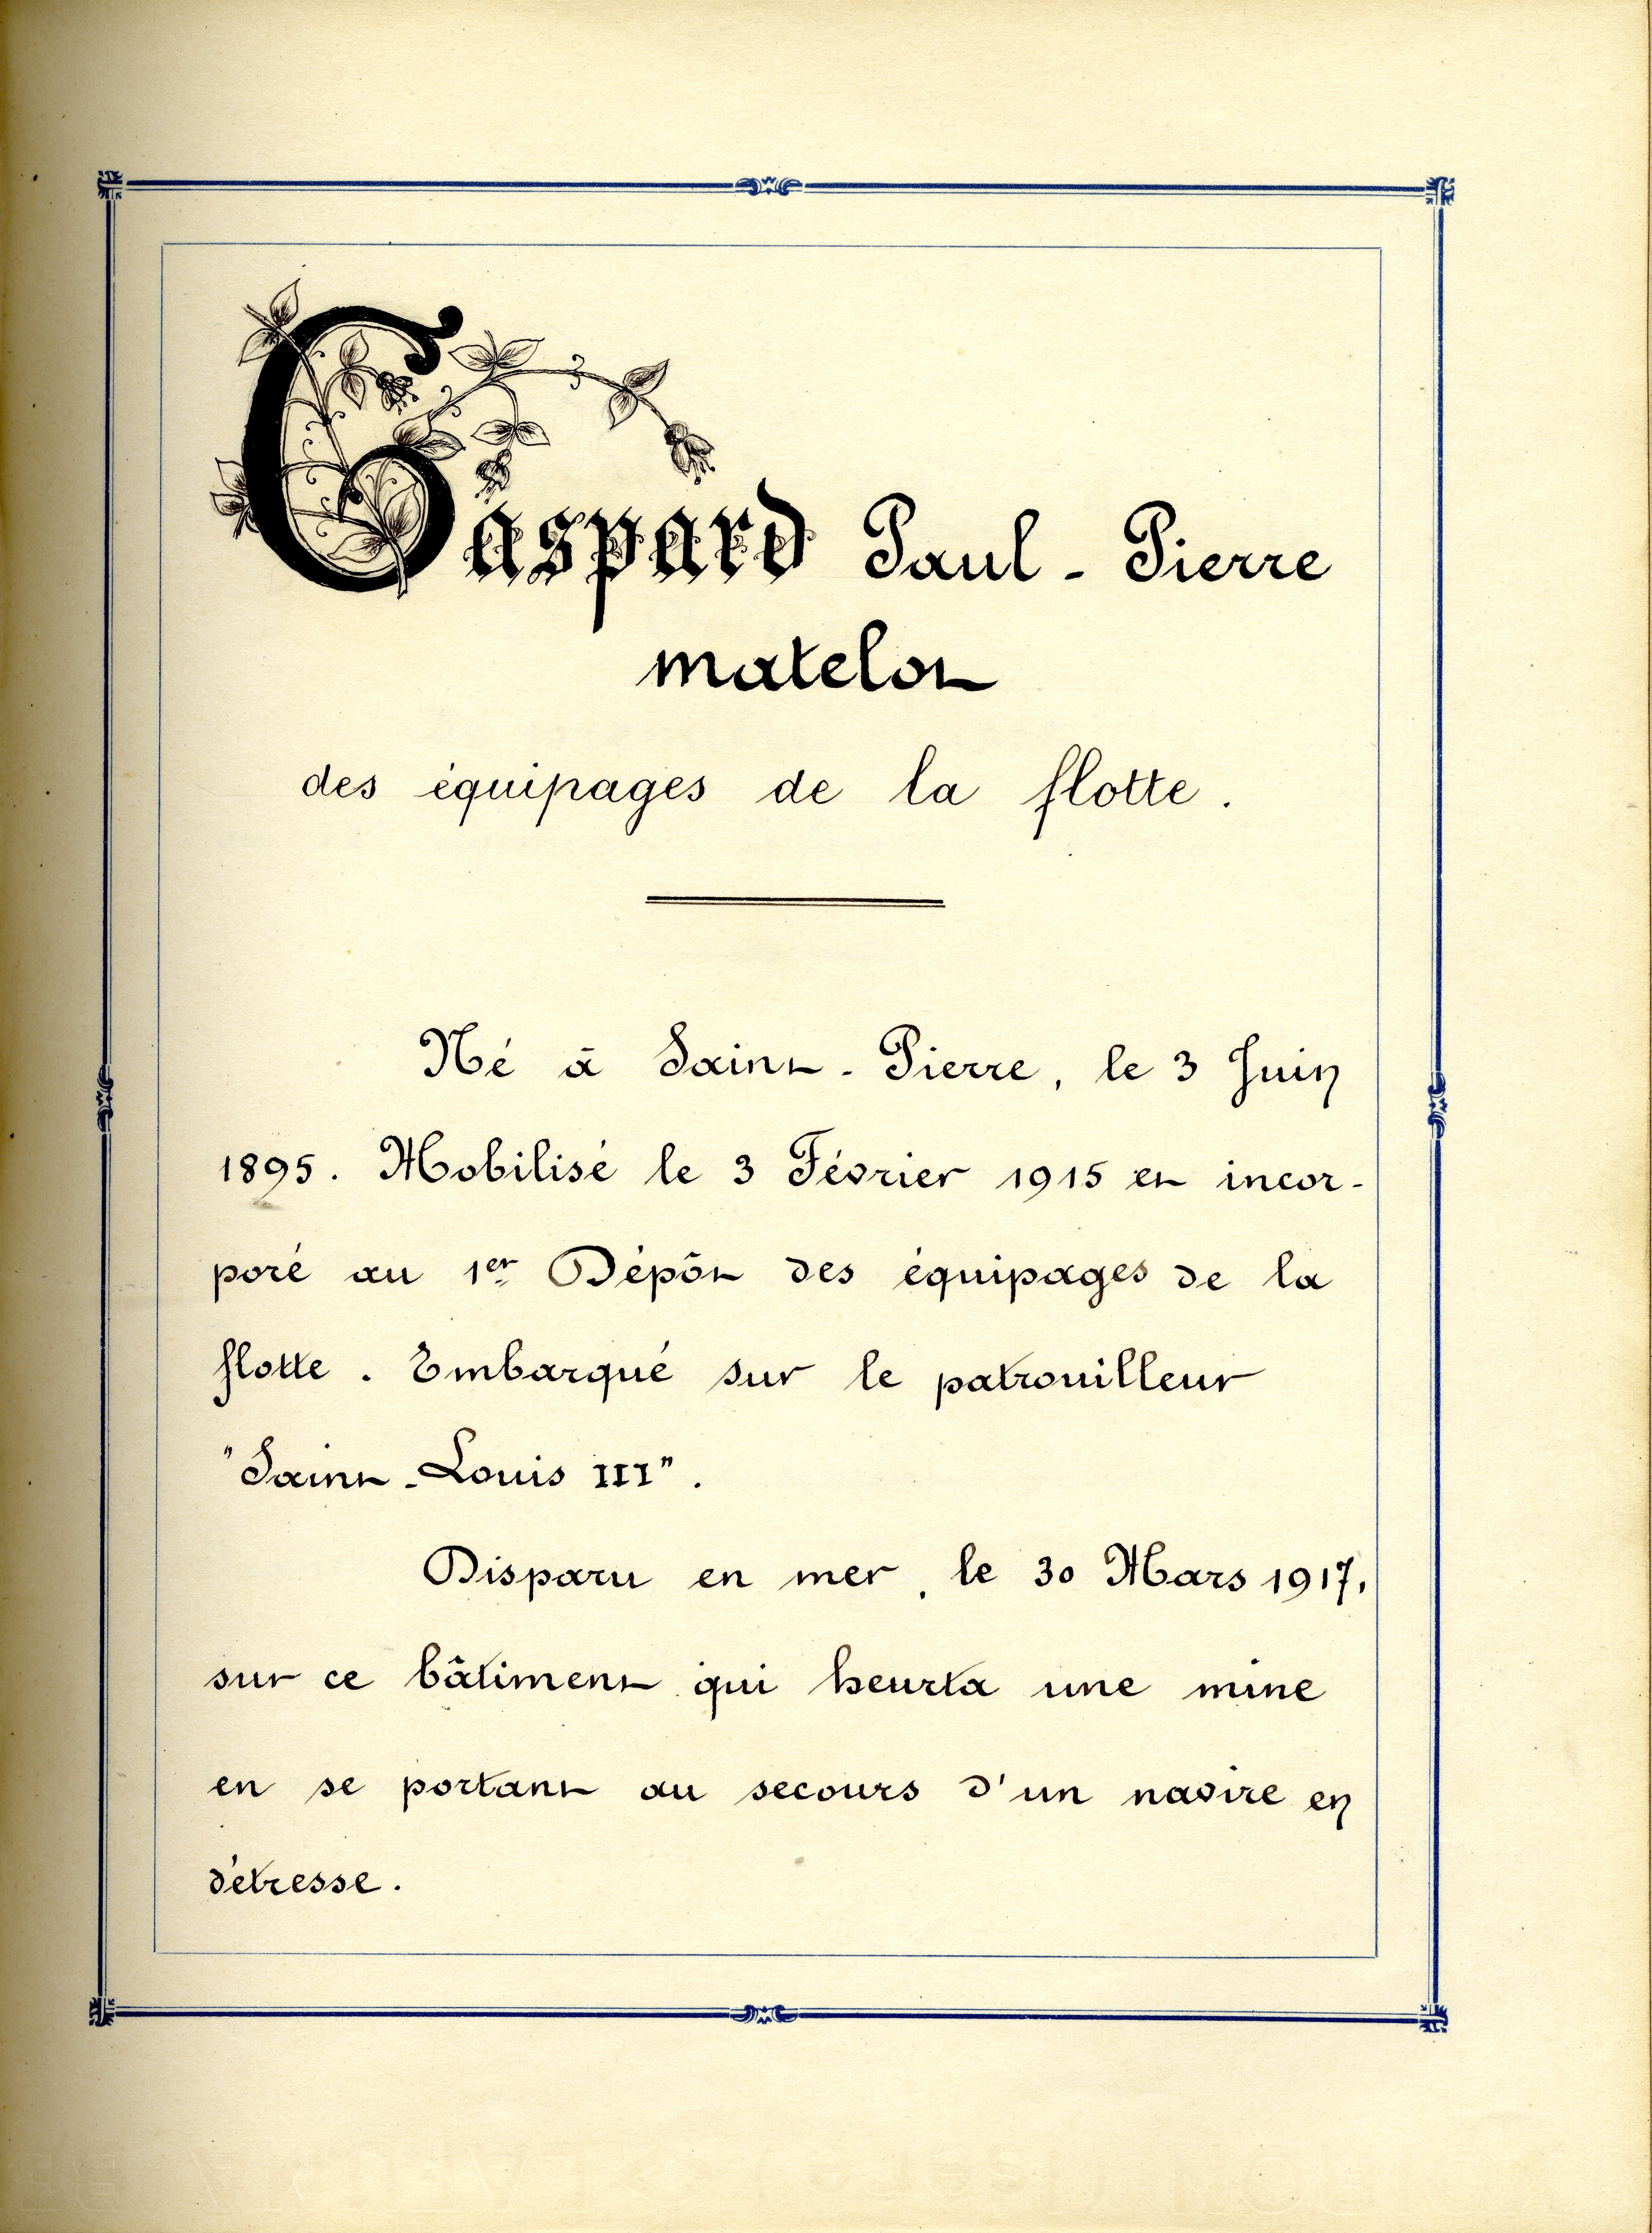 Gaspard Paul-Pierre
matelot
des équipages de la flotte.
Né à Saint-Pierre, le 3 Juin
1895. Mobilisé le 3 Février 1915 et incor-
poré au 1er Dépôt des équipages de la
flotte. Embarqué sur le patrouilleur
"Saint-Louis III".
Disparu en mer, le 30 Mars 1917,
sur ce bâtiment qui heurta une mine
en se portant au secours d'un navire en
détresse.